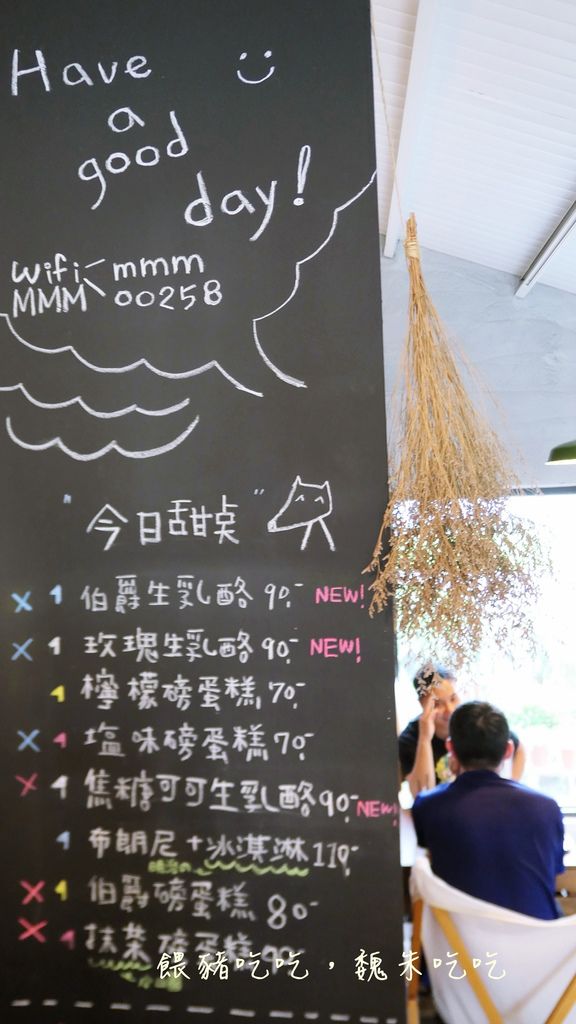 Have
a
good
day!
wifi mmm
MMM 00258
"今日甜点"
伯爵生乳酪 90.- NEW!
玫瑰生乳酪 90.- NEW!
檸檬磅蛋糕 70.-
塩味磅蛋糕 70.-
焦糖可可生乳酪 90.- NEW!
布朗尼+冰淇淋 110.-
伯爵磅蛋糕 80-
抹茶磅蛋糕
餵豬吃吃，魏朱吃吃